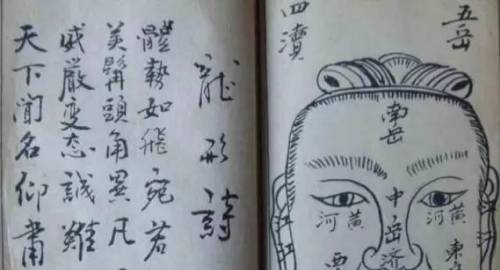 五岳
四瀆
南岳
黃河
中岳
濟
黃河
東
龍形詩
體勢如飛宛若
美髯頭角異凡
威嚴变态誠難
天下聞名仰肅